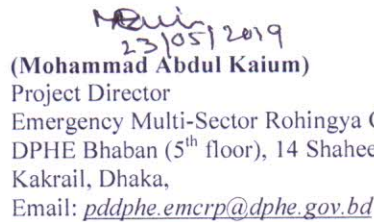 23/05/2019
(Mohammad Abdul Kaium)
Project Director
Emergency Multi-Sector Rohingya
DPHE Bhaban (5th floor), 14 Shahee
Kakrail, Dhaka,
Email: pddphe.emcrp@dphe.gov.bd